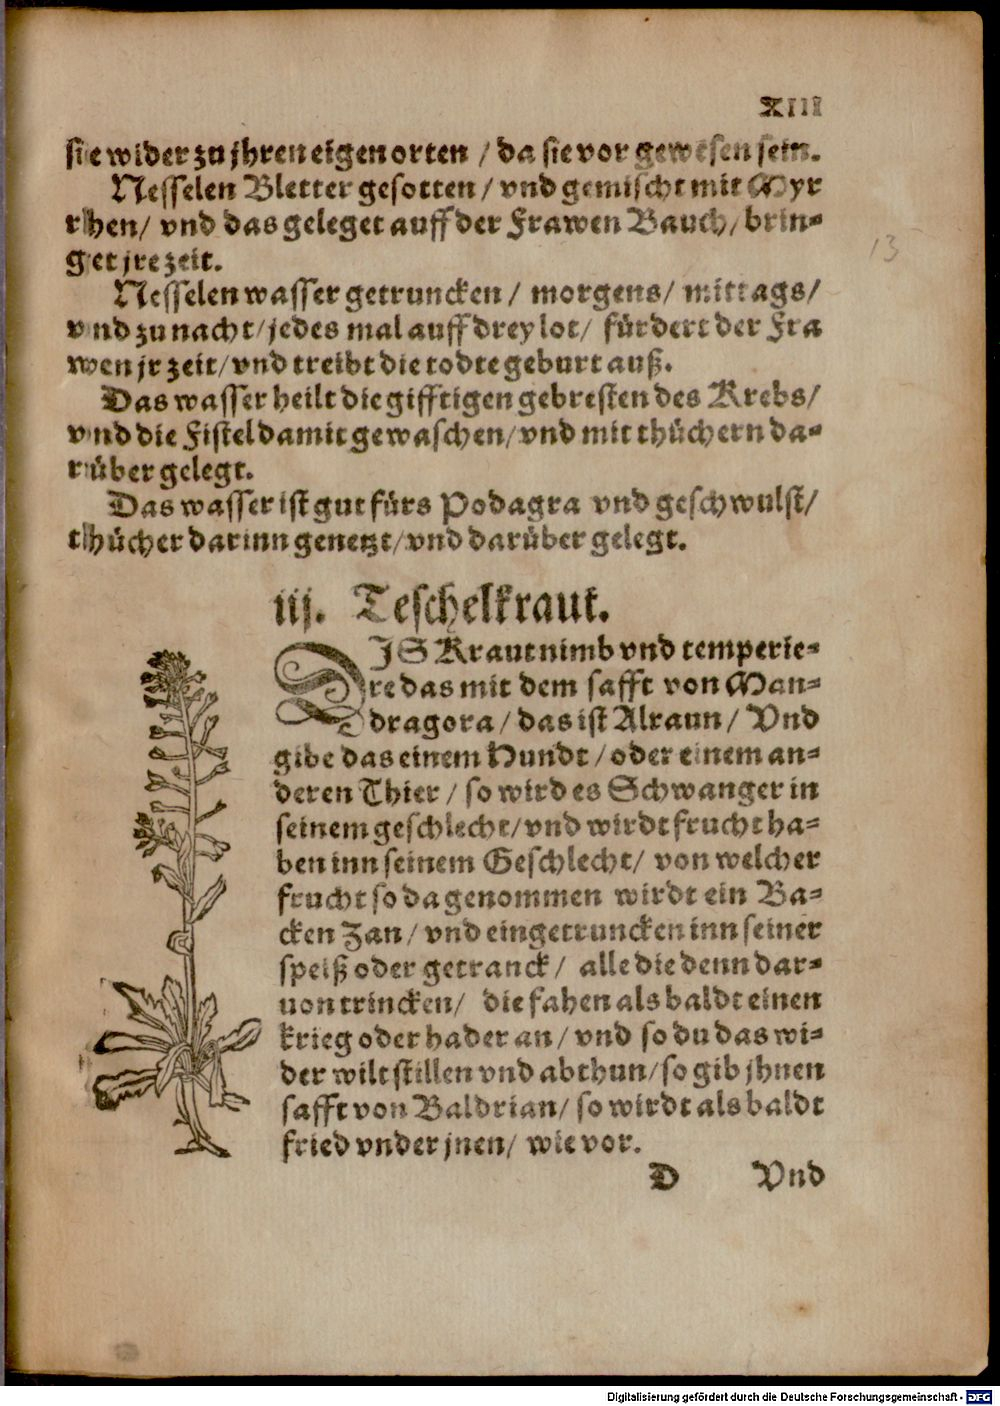 XIII
sie wider zu jhren eigen orten / da sie vor gewesen sein.
Nesselen Bletter gesotten / vnd gemischt mit Myr
rhen / vnd das geleget auff der Frawen Bauch / brin⸗
get jre zeit.
Nesselen wasser getruncken / morgens / mittags /
vnd zu nacht / jedes mal auff drey lot / fürdert der Fra
wen jr zeit / vnd treibt die todte geburt auß.
Das wasser heilt die gifftigen gebresten des Krebs /
vnd die Fistel damit gewaschen / vnd mit thüchern da⸗
rüber gelegt.
Das wasser ist gut fürs Podagra vnd geschwulst /
thücher darinn genetzt / vnd darüber gelegt.
13
iij. Teschelkraut.
DJS Kraut nimb vnd temperie⸗
re das mit dem safft von Man⸗
dragora / das ist Alraun / Vnd
gibe das einem Hundt / oder einem an⸗
deren Thier / so wird es Schwanger in
seinem geschlecht / vnd wirdt frucht ha⸗
ben inn seinem Geschlecht / von welcher
frucht so da genommen wirdt ein Ba⸗
cken Zan / vnd eingetruncken inn seiner
speiß oder getranck / alle die denn dar⸗
uon trincken / die fahen als baldt einen
krieg oder hader an / vnd so du das wi⸗
der wilt stillen vnd abthun / so gib jhnen
safft von Baldrian / so wirdt als baldt
fried vnder jnen / wie vor.
D Vnd
Digitalisierung gefördert durch die Deutsche Forschungsgemeinschaft - DFG